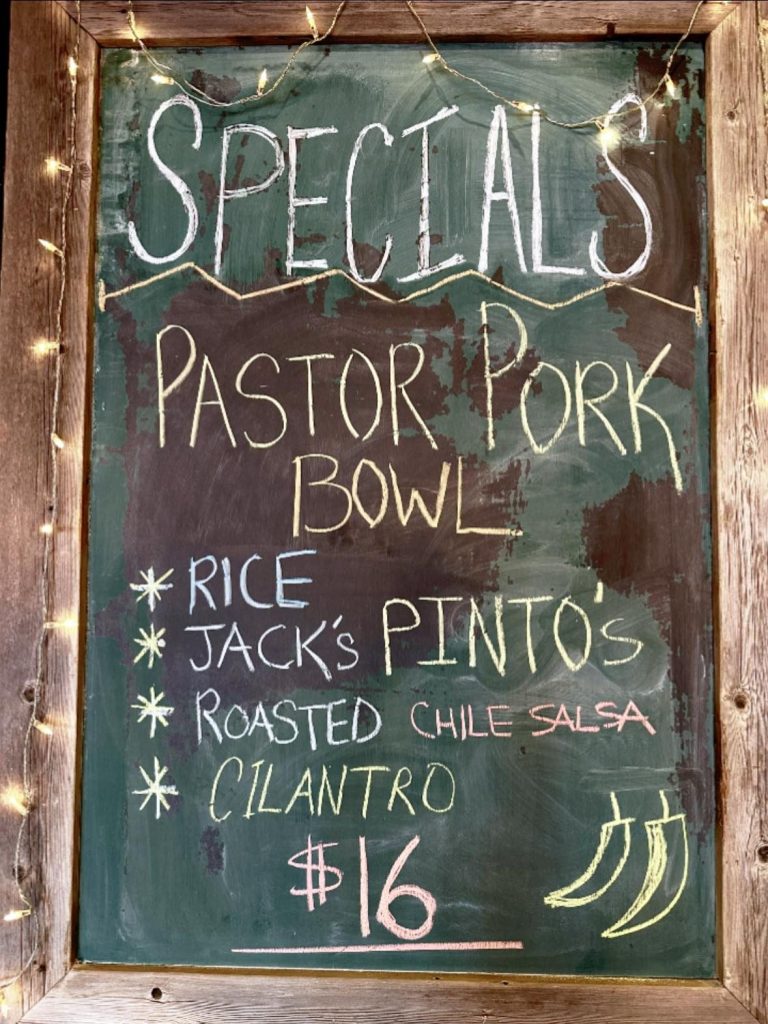 SPECIALS
PASTOR PORK
BOWL
* RICE
* JACK's PINTO's
* ROASTED CHILE SALSA
* CILANTRO
$16